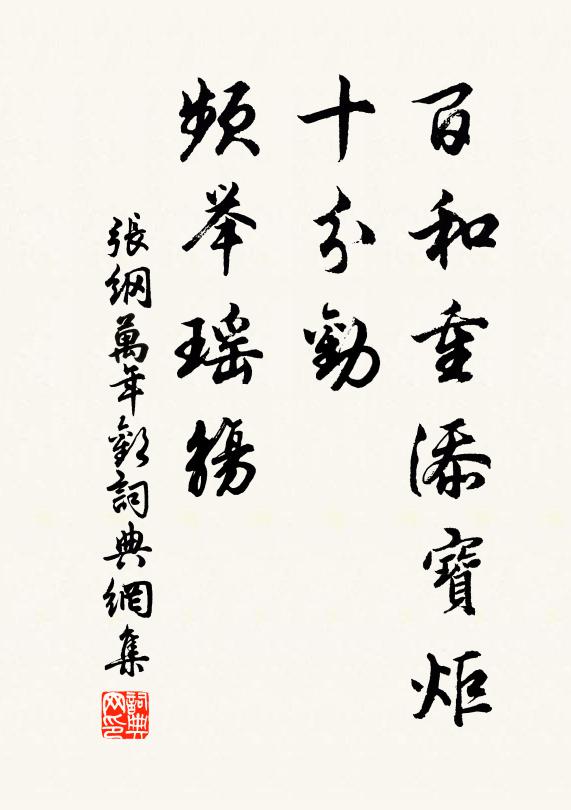 百和重添寶炬
十分勸
頻举瑶觴
張綱萬年歡詞典網集
詞典網印